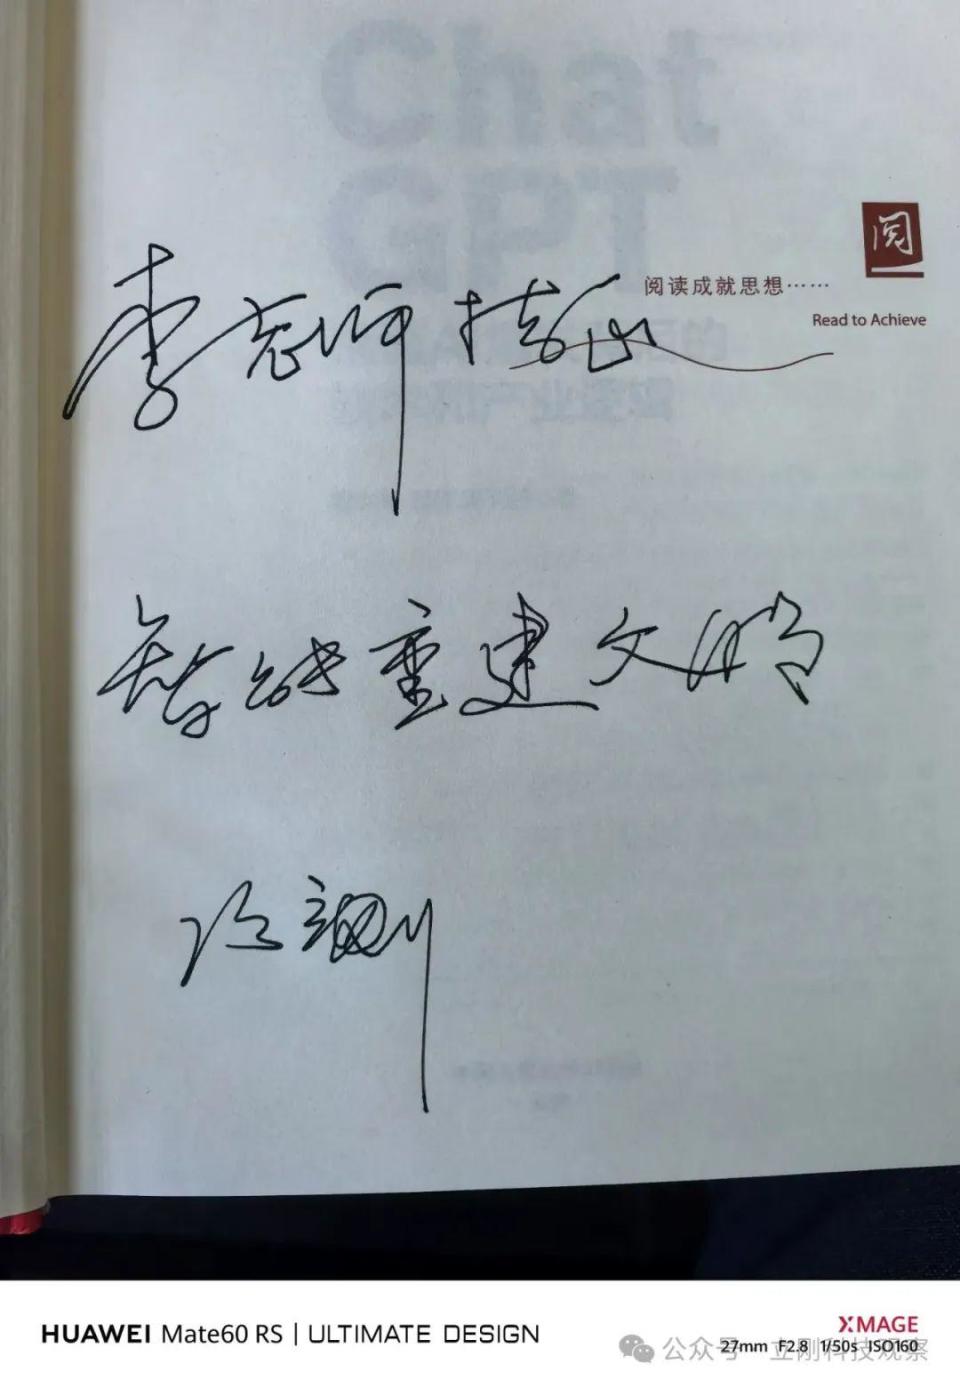 Chat
GPT
阅
阅读成就思想……
Read to Achieve
李老师指正
智能重建文明
陈立刚
HUAWEI Mate60 RS | ULTIMATE DESIGN
XMAGE
27mm F2.8 1/50s ISO160
公众号·立刚科技观察